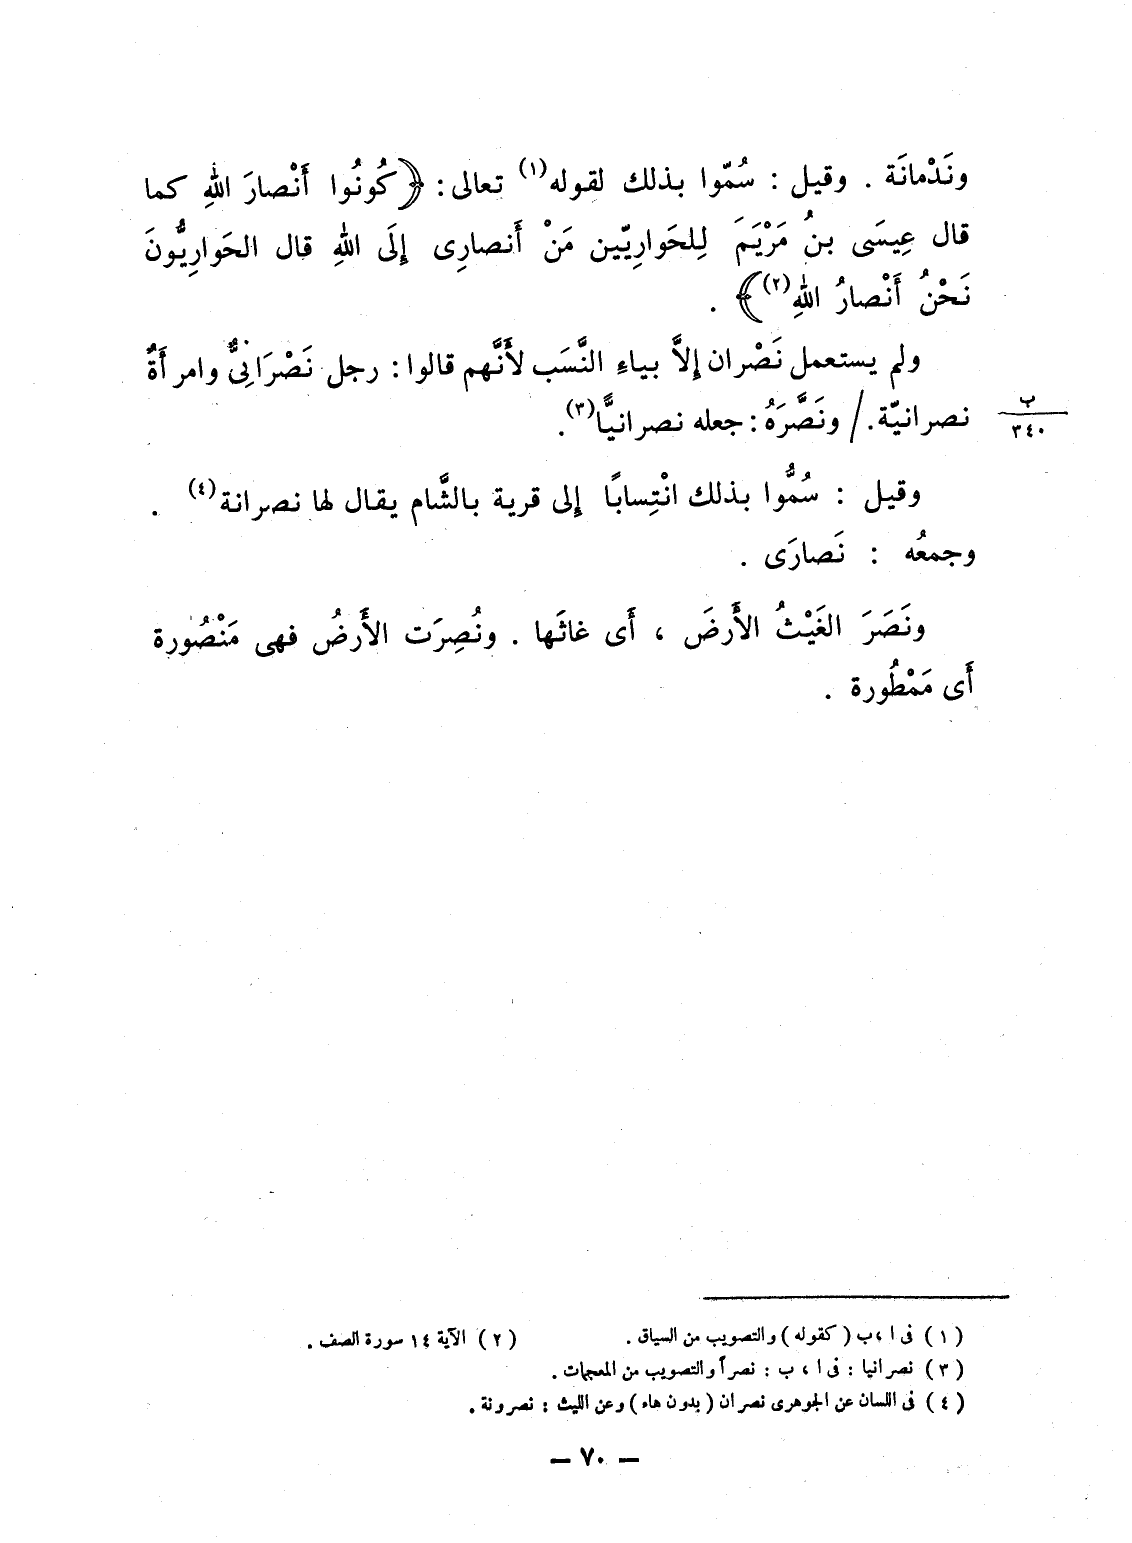 ونَدْمانَة . وقيل : سُمّوا بذلك لقوله(١) تعالى : ﴿كُونُوا أَنْصارَ اللهِ كما
قال عِيسَى بنُ مَرْيَمَ لِلحَوارِيّين مَنْ أَنصارِى إِلَى اللهِ قال الحَوارِيُّونَ
نَحْنُ أَنْصارُ اللهِ(٢)﴾ .
ولم يستعمل نَصْران إِلاَّ بياءِ النَّسَب لأَنَّهم قالوا : رجل نَصْرَانِىٌّ وامرأَةٌ
نصرانيّة. / ونَصَّرَهُ : جعله نصرانيًّا(٣).
ب
٣٤٠
وقيل : سُمُّوا بذلك انْتِسابًا إلى قرية بالشَّام يقال لها نصرانة(٤) .
وجمعُه : نَصارَى .
ونَصَرَ الغَيْثُ الأَرضَ ، أَى غاثَها . ونُصِرَت الأَرضُ فهى مَنْصُورة
أَى مَمْطُورة .
(١) فى ا ،ب (كقوله) والتصويب من السياق . (٢) الآية ١٤ سورة الصف .
(٣) نصرانيا : فى ا ، ب : نصراً والتصويب من المعجمات .
(٤) فى اللسان عن الجوهرى نصران (بدون هاء) وعن الليث : نصرونة .
— ٧٠ —